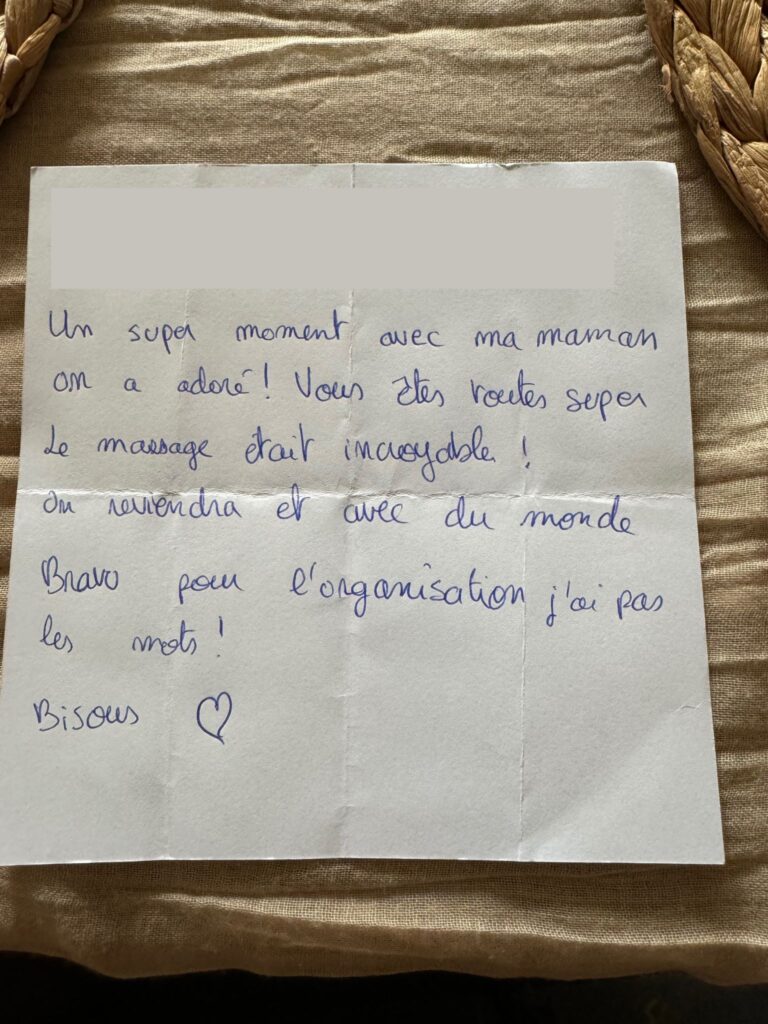 Un super moment avec ma maman
on a adoré ! Vous êtes toutes super
Le massage était incroyable !
On reviendra et avec du monde
Bravo pour l'organisation j'ai pas
les mots !
Bisous ♡